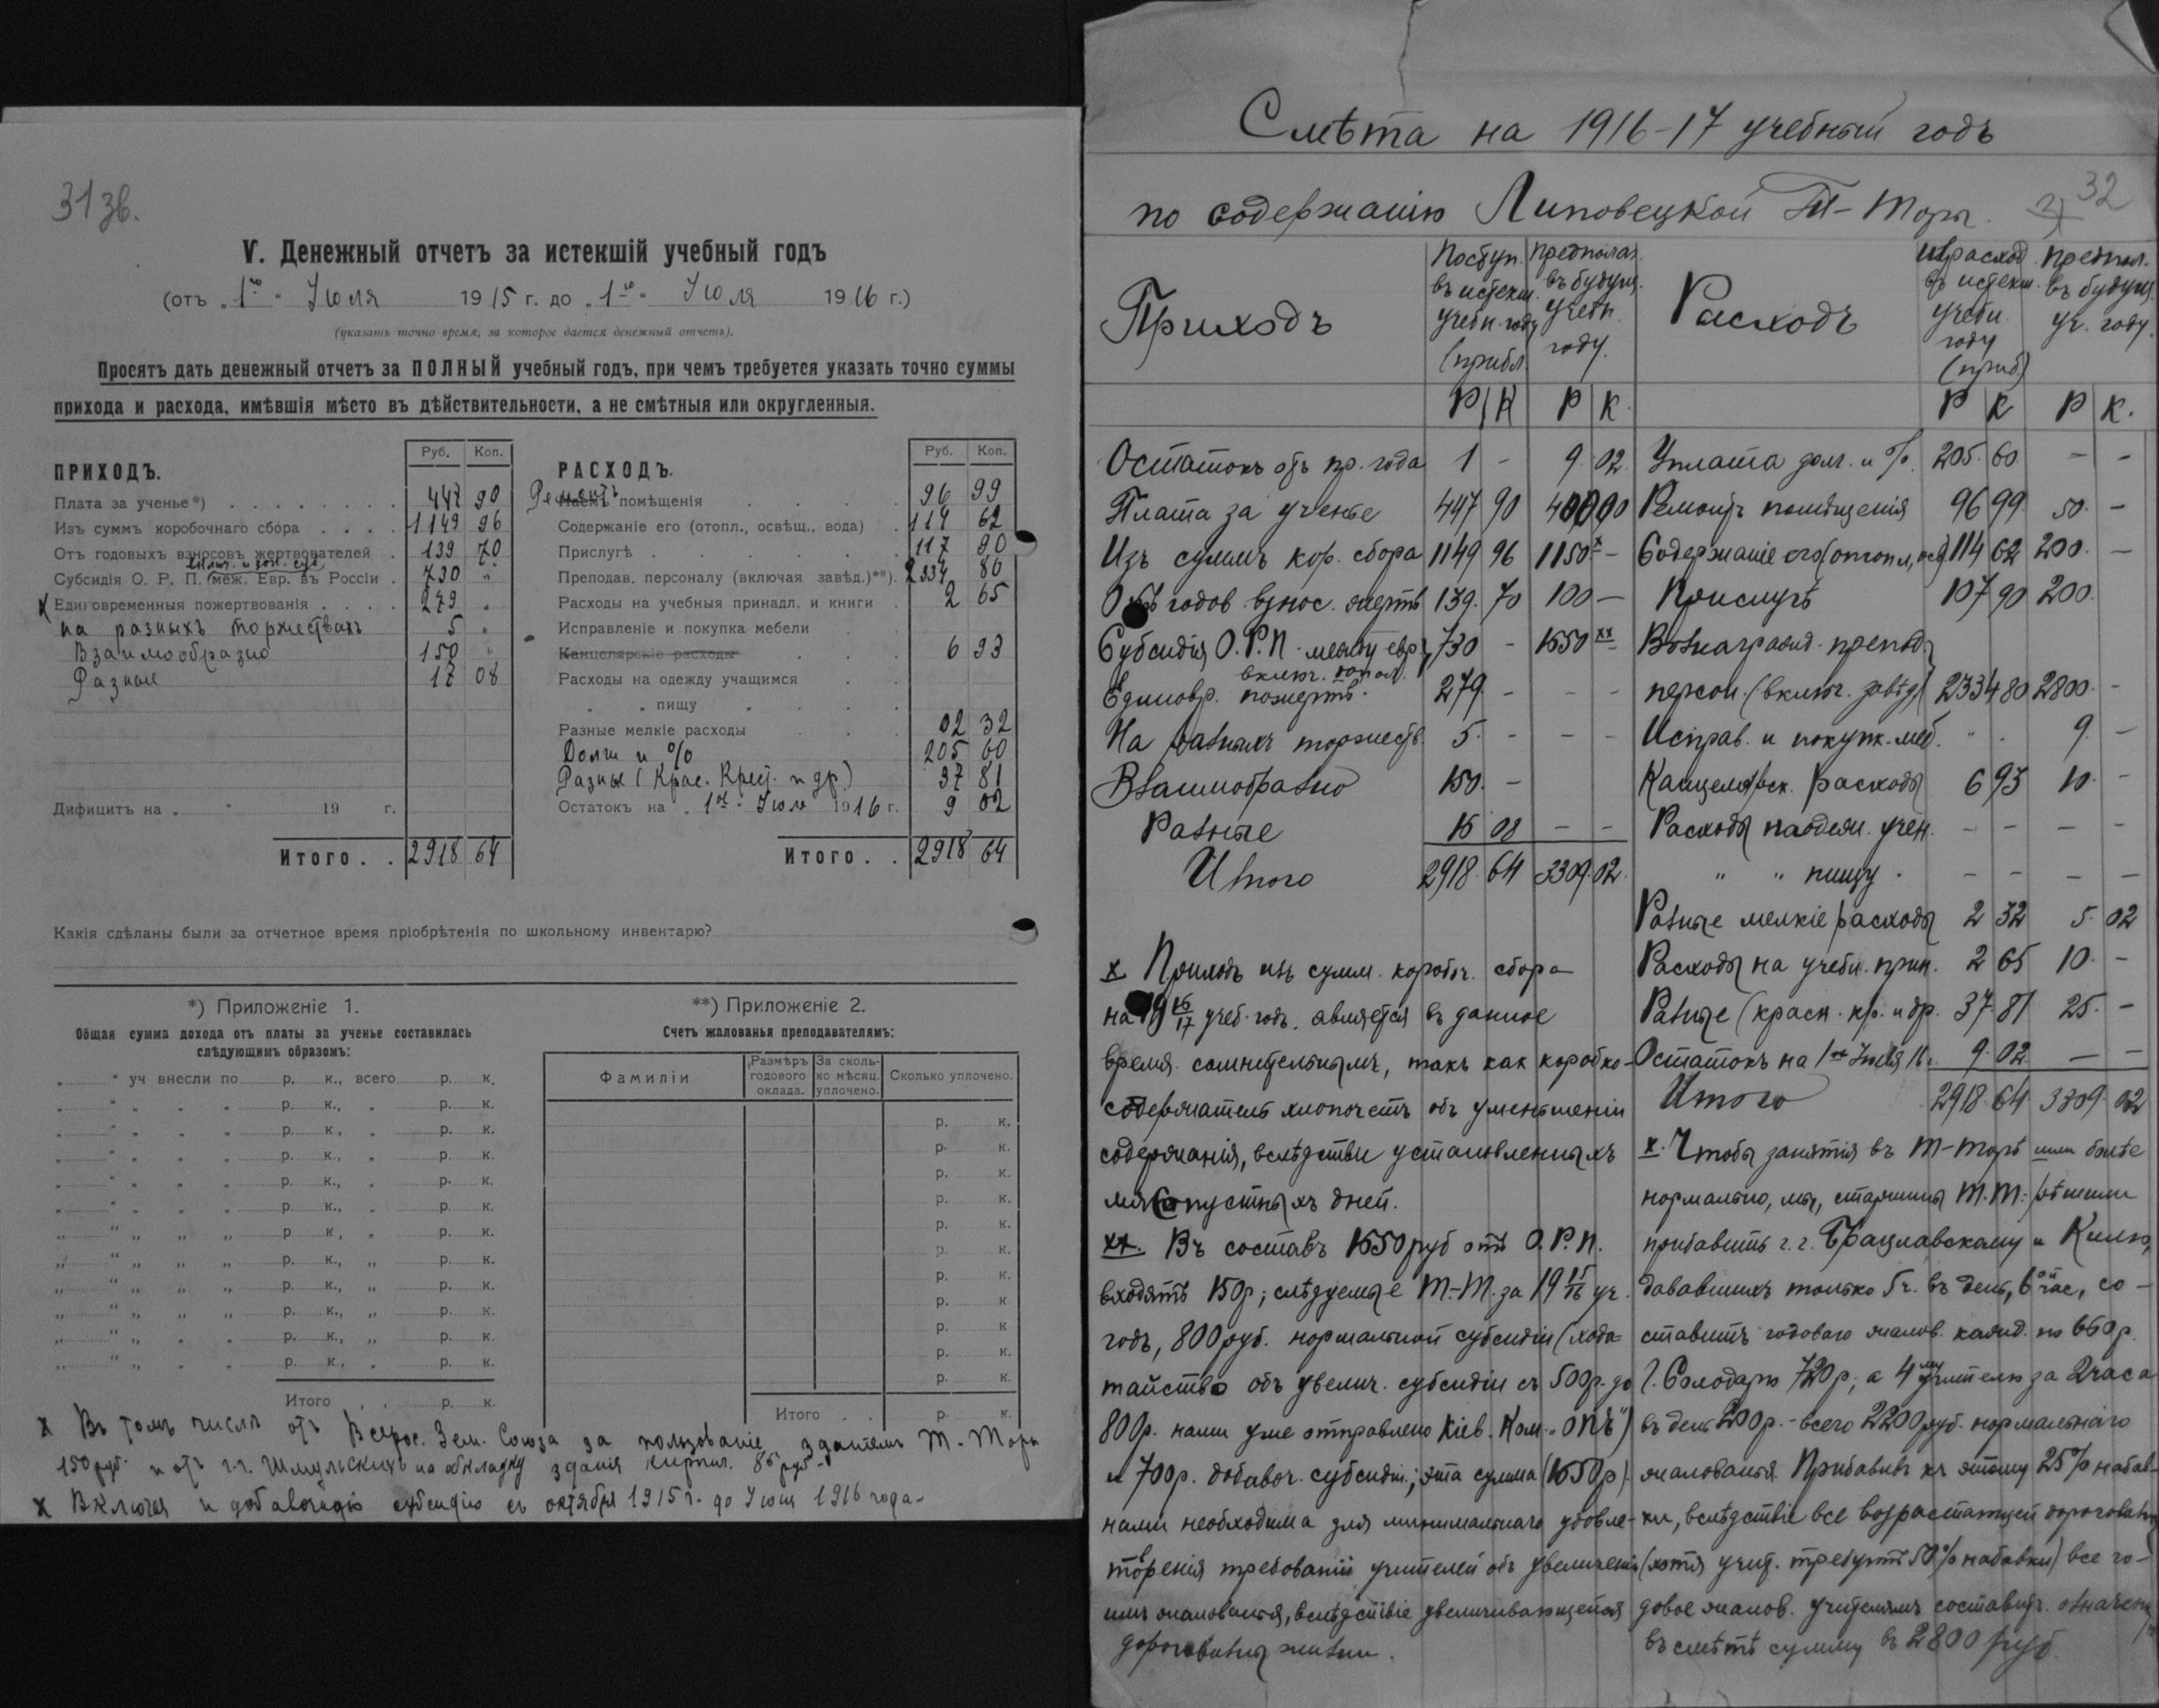 31 зв.
V. Денежный отчетъ за истекшій учебный годъ
(отъ „1го“ Іюля 1915 г. до „1го“ Іюля 1916 г.)
(указать точно время, за которое дается денежный отчетъ).
Просятъ дать денежный отчетъ за ПОЛНЫЙ учебный годъ, при чемъ требуется указать точно суммы
прихода и расхода, имѣвшія мѣсто въ дѣйствительности, а не смѣтныя или округленныя.
ПРИХОДЪ. Руб. Коп.
Плата за ученье*) 447 90
Изъ суммъ коробочнаго сбора 1149 96
Отъ годовыхъ взносовъ жертвователей 139 70
Субсидія О. Р. П. меж. Евр. въ Россіи 730 „
х Единовременныя пожертвованія 279 „
на разныхъ торжествахъ 5 „
Взаимообразно 150 „
Разные 17 08
Дифицитъ на „ “ 19 г.
Итого . . 2918 64
РАСХОДЪ. Руб. Коп.
Ремонтъ помѣщенія 96 99
Содержаніе его (отопл., освѣщ., вода) 114 62
Прислугѣ 117 90
Преподав. персоналу (включая завѣд.)**) 2334 80
Расходы на учебныя принадл. и книги 2 65
Исправленіе и покупка мебели
Канцелярскіе расходы 6 93
Расходы на одежду учащимся
„ „ пищу „
Разные мелкіе расходы 02 32
Долги и % 205 60
Разные (Крас. Крест. и др) 37 81
Остатокъ на „1ое“ Іюля 1916 г. 9 02
Итого . . 2918 64
Какія сдѣланы были за отчетное время пріобрѣтенія по школьному инвентарю?
*) Приложеніе 1.
Общая сумма дохода отъ платы за ученье составилась
слѣдующимъ образомъ:
„ “ уч внесли по р. к., всего р. к.
„ “ „ „ „ р. к., „ р. к.
„ “ „ „ „ р. к., „ р. к.
„ “ „ „ „ р. к., „ р. к.
„ “ „ „ „ р. к., „ р. к.
„ “ „ „ „ р. к., „ р. к.
„ “ „ „ „ р к., „ р. к.
„ “ „ „ „ р. к., „ р. к.
„ “ „ „ „ р. к., „ р. к.
„ “ „ „ „ р. к., „ р. к.
„ “ „ „ „ р. к., „ р. к.
„ “ „ „ „ р. к., „ р. к.
Итого . . р. к.
**) Приложеніе 2.
Счетъ жалованья преподавателямъ:
Фамиліи Размѣръ годового оклада. За сколько мѣсяц. уплочено. Сколько уплочено.
р. к.
р. к.
р. к.
р. к.
р. к.
р. к.
р. к.
р. к
р. к
р. к.
р. к.
Итого . . р. к.
х Въ томъ числѣ отъ Всерос. Зем. Союза за пользованіе зданіемъ Т.-Торы
150 руб. и отъ г.г. Шмульскихъ на обкладку зданія кирпич. 85 руб.
х Включая и добавочную субсидію съ октября 1915 г. до Іюля 1916 года.
32
Смѣта на 1916-17 учебный годъ
по содержанію Липовецкой Т-Торы.
Приходъ Поступ. въ истекш. учебн. году (прибл. Предполаг. въ будущ. учебн. году.
Р К Р К.
Остатокъ отъ пр. года 1 - 9. 02.
Плата за ученье 447 90 400 00
Изъ суммъ кор. сбора 1149 96 1150 х -
Отъ годов. взнос. жертв 139. 70 100 -
Субсидія О.Р.П. между евр. 730 - 1650 хх
включ. допол.
Единовр. пожертв. 279. - - -
На разныхъ торжеств. 5. - - -
Взаимобразно 150. -
Разные 16 08 - -
Итого 2918. 64 3309. 02.
х Приходъ изъ сумм. коробоч. сбора
на 19 16/17 учеб. годъ. является въ данное
время сомнительнымъ, такъ как коробко-
содержатель хлопочетъ объ уменьшеніи
содержанія, вслѣдствіи установленныхъ
мясопустныхъ дней.
хх. Въ составъ 1650 руб отъ О.Р.П.
входятъ 150 р; слѣдуемые Т.-Т. за 19 15/16 уч.
годъ, 800 руб. нормальной субсидіи (хода-
тайство объ увелич. субсидіи съ 500 р. до
800 р. нами уже отправлено Кіев. Ком. „ОПЪ“)
и 700 р. добавоч. субсидіи; эта сумма (1650 р.)
нами необходима для минимальнаго удовле-
творенія требованій учителей объ увеличеніи
имъ жалованья, вслѣдствіе увеличивающейся
дороговизны жизни.
Расходъ Израсход. въ истекш. учебн. году (приб.) Предпол. въ будущ. уч. году.
Р К Р К.
Уплата долг. и %. 205. 60. - -
Ремонтъ помѣщенія 96 99. 50. -
Содержаніе его (отопл, осв) 114 62 200. -
Прислугѣ 107 90 200.
Вознагражд. препод.
персон. (включ. завѣд) 2334 80 2800. -
Исправ. и покупк. меб. „ . 9. -
Канцелярск. расходы 6 93 10. -
Расходы на одежд. учен. - - - -
„ „ пищу . - - - -
Разные мелкіе расходы 2 32 5. 02
Расходы на учебн. прин. 2 65 10. -
Разные (красн. кр. и др. 37. 81 25. -
Остатокъ на 1ое Іюля 16 г. 9. 02. - -
Итого 2918. 64. 3309. 02
х. Чтобы занятія въ Т-Торѣ шли болѣе
нормально, мы, старшины Т.Т. рѣшили
прибавить г.г. Брацлавскому и Килю,
дававшихъ только 5 ч. въ день, 6ой час, со-
ставитъ годоваго жалов. кажд. по 660 р.
Г. Солодарю 720 р; а 4му учителю за 2 часа
въ день 200 р. - всего 2200 руб. нормальнаго
жалованья. Прибавивъ къ этому 25% набав-
ки, вслѣдствіе все возрастающей дороговизны
(хотя учит. требуютъ 50% набавки) все го-
довое жалов. учителямъ составитъ
въ смѣтѣ сумму въ 2800 руб.